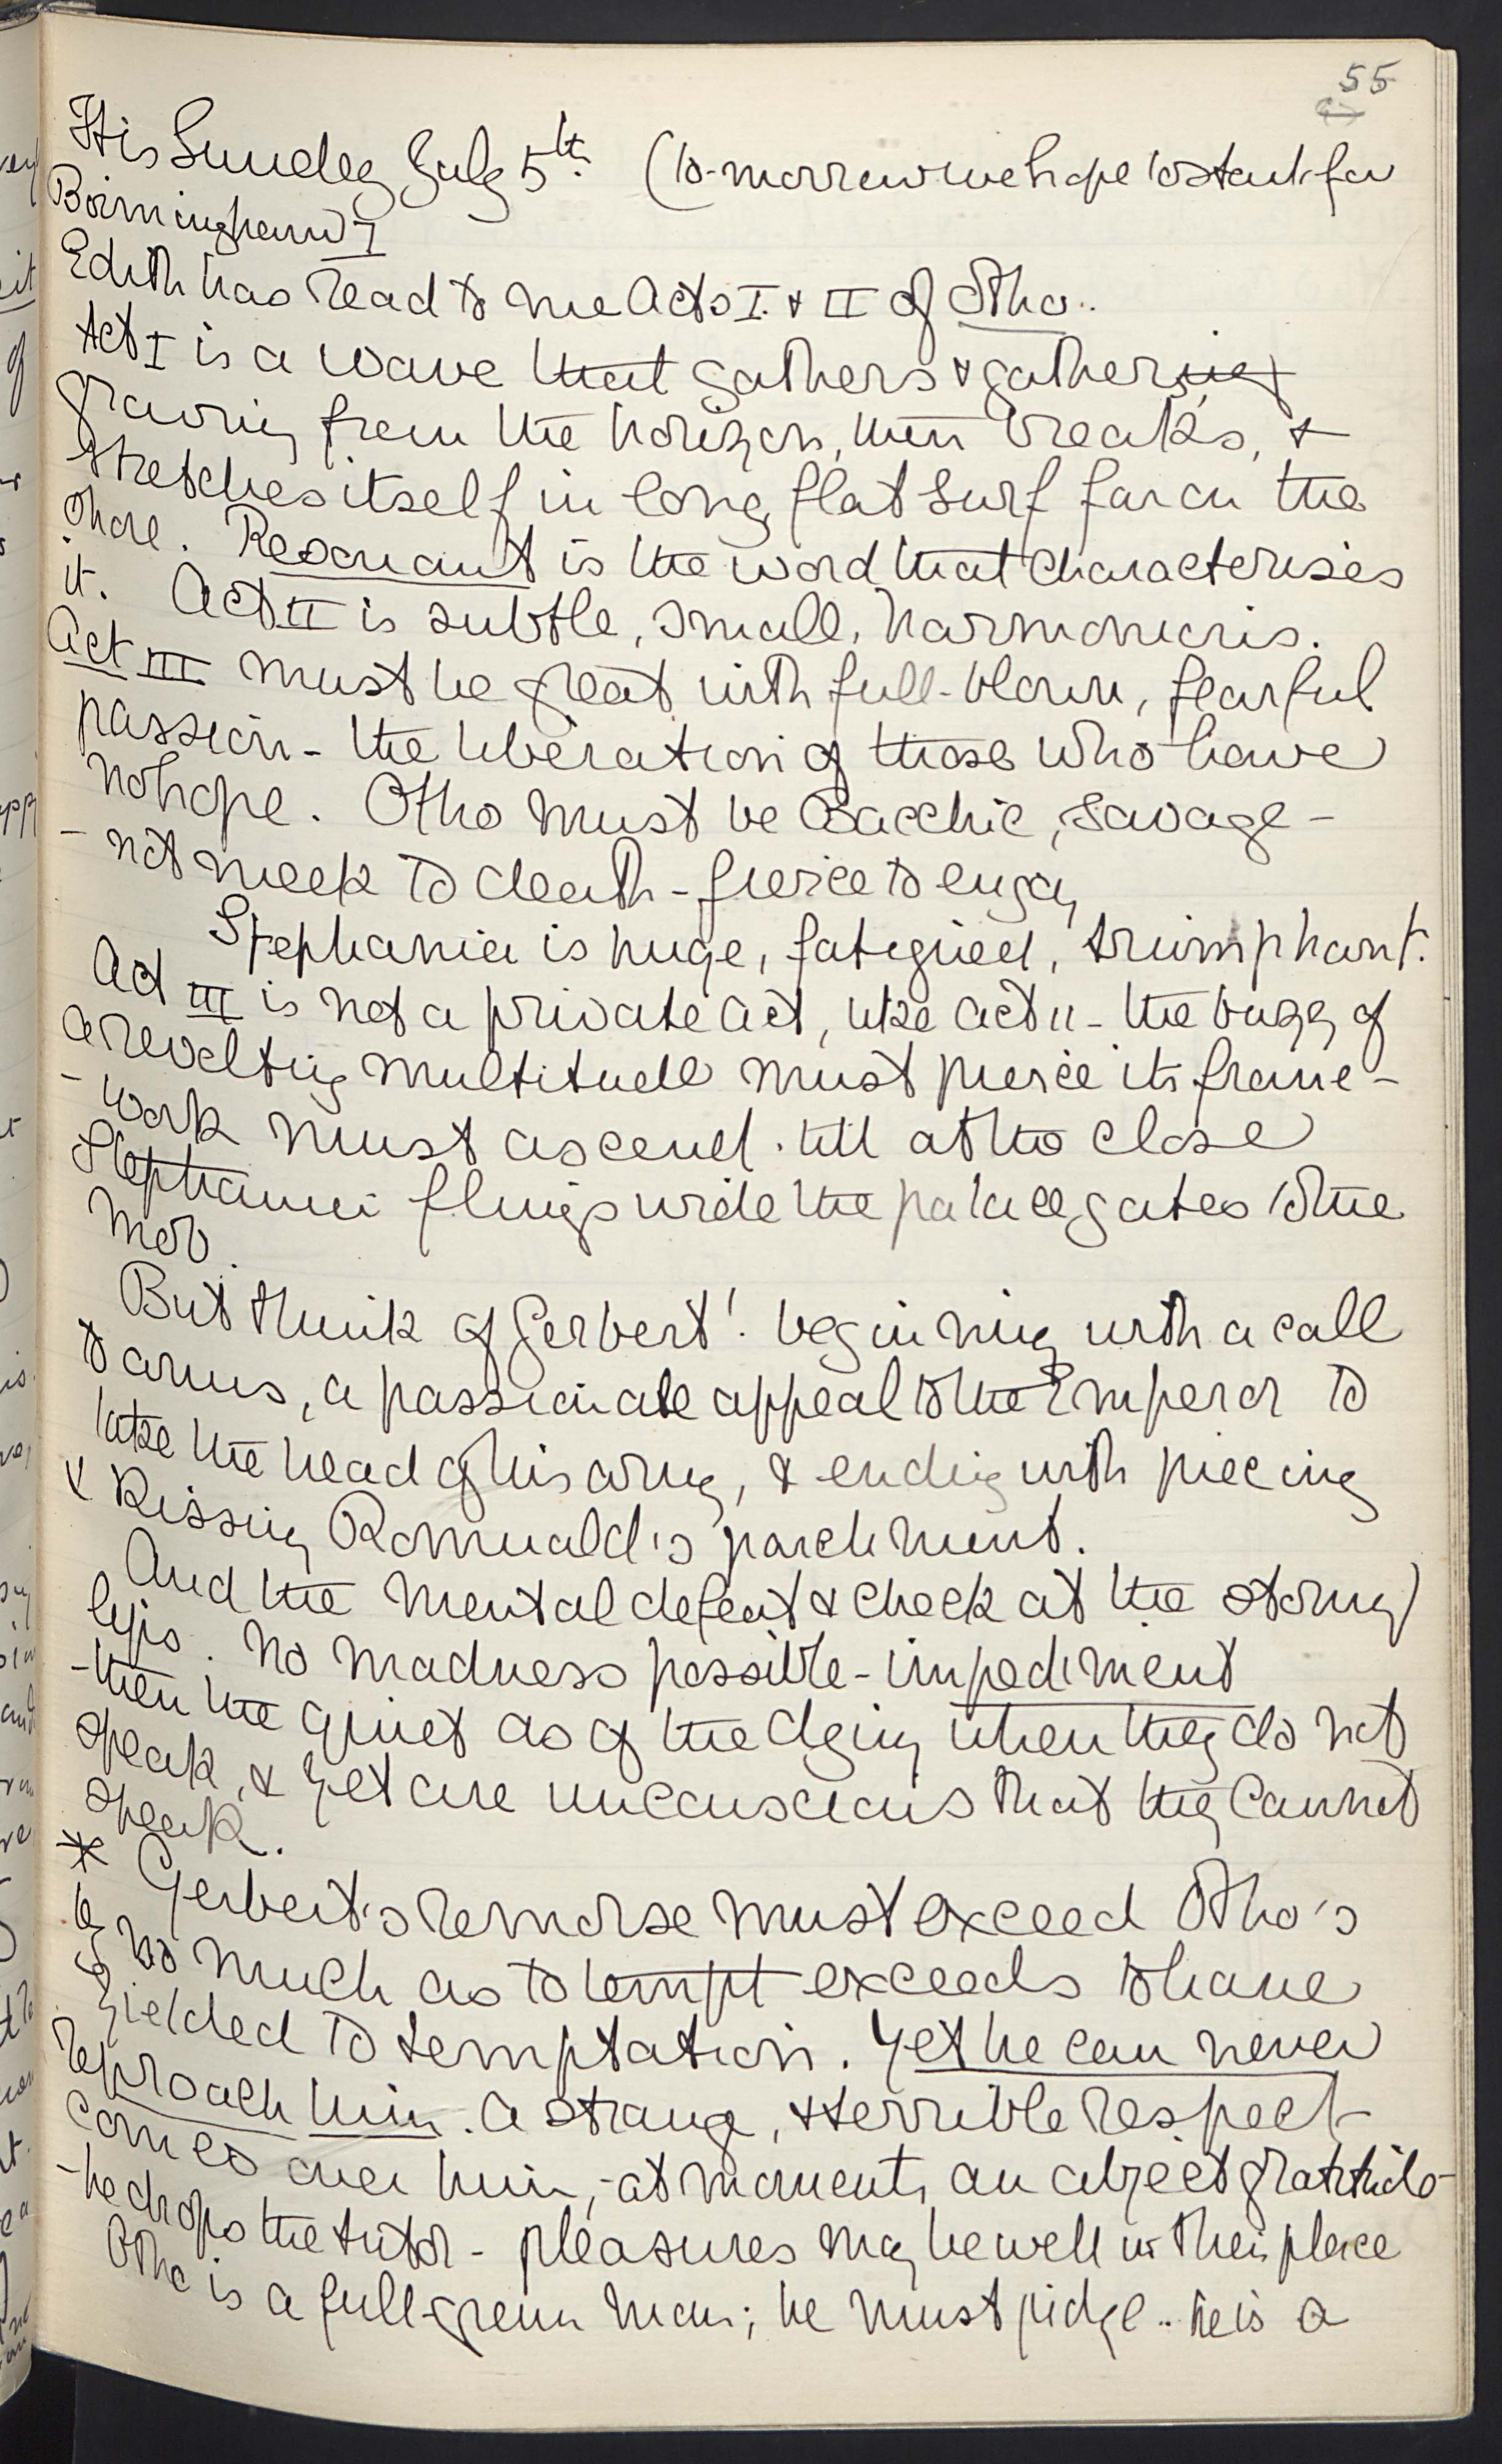 55
It is Sunday July 5th. (to-morrow we hope to start for
Birmingham)
Edith has read to me Acts I. & II of Otho..
Act I is a wave that gathers & gathering
growing from the horizon, then breaks, &
stretches itself in long flat surf far on the
shore. Resonant is the word that characterises
it. Act II is subtle, small, harmonious.
Act III must be great with full-blown, fearful
passion - the liberation of those who have
no hope. Otho must be Bacchic, savage -
- not meek to death - fierce to enjoy
Stephania is huge, fatigued, triumphant.
Act III is not a private act, like act II - the buzz of
a revolting multitude must pierce its frame-
- work must ascend. till at the close
Stephania flings wide the palace gates to the
mob.
But think of Gerbert! beginning with a call
to arms, a passionate appeal to the Emperor to
take the head of his army, & ending with piecing
& kissing Romuald's parchment.
And the mental defeat & check at the stormy
lips. No madness possible - impediment
- then the quiet as of the dying when they do not
speak, & yet are unconscious that they cannot
speak.
* Gerbert's remorse must exceed Otho's
by so much as to tempt exceeds to have
yielded to temptation. Yet he can never
reproach him. A strange, & terrible respect
comes over him, - at moments an abject gratitude -
- he drops the tutor - pleasures may be well in their place
Otho is a full-grown man; he must judge .. he is a